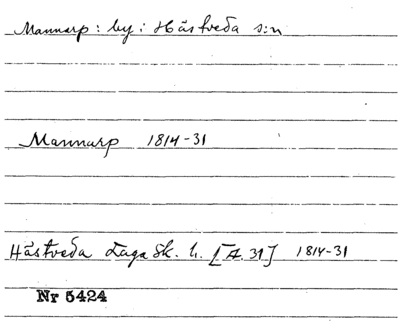 Mannarp : by i Hästveda s:n
Mannarp 1814-31
Hästveda Laga Sk. h. [A. 31] 1814-31
Nr 5424